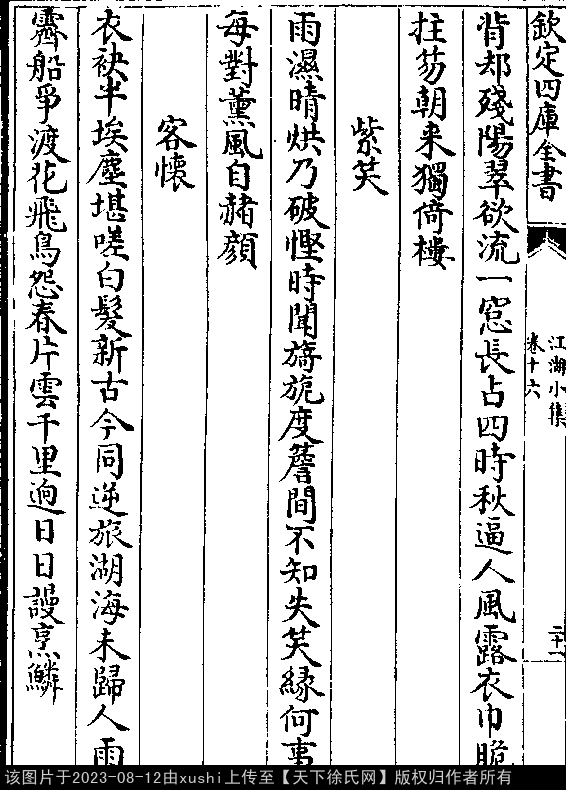 欽定四庫全書
江湖小集
卷十六
二十一
背却殘陽翠欲流一窓長占四時秋逼人風露衣巾脆
拄笏朝来獨倚樓
紫笑
雨濕晴烘乃破慳時聞旖旎度簷間不知失笑緣何事
每對薫風自赭顔
客懷
衣袂半埃塵堪嗟白髮新古今同逆旅湖海未歸人雨
霽船爭渡花飛鳥怨春片雲千里迥日日謾烹鱗
该图片于2023-08-12由xushi上传至【天下徐氏网】版权归作者所有